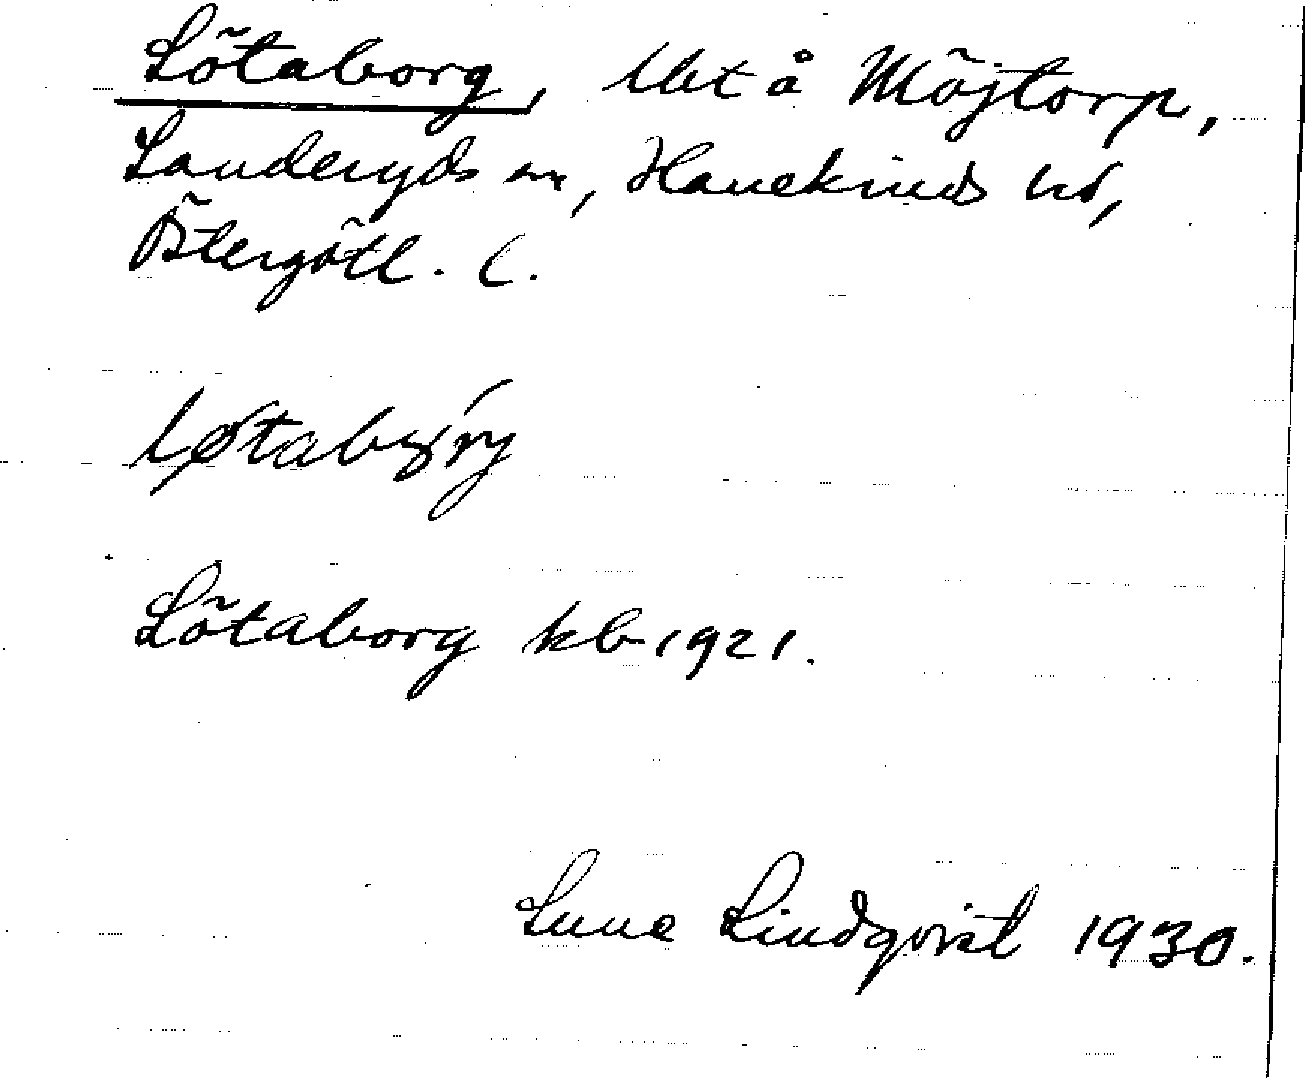 Lötaborg, lht å Möjtorp,
Landeryds sn, Hanekinds hd,
Östergötl. l.
Lötaborg kb 1921.
Sune Lindqvist 1930.